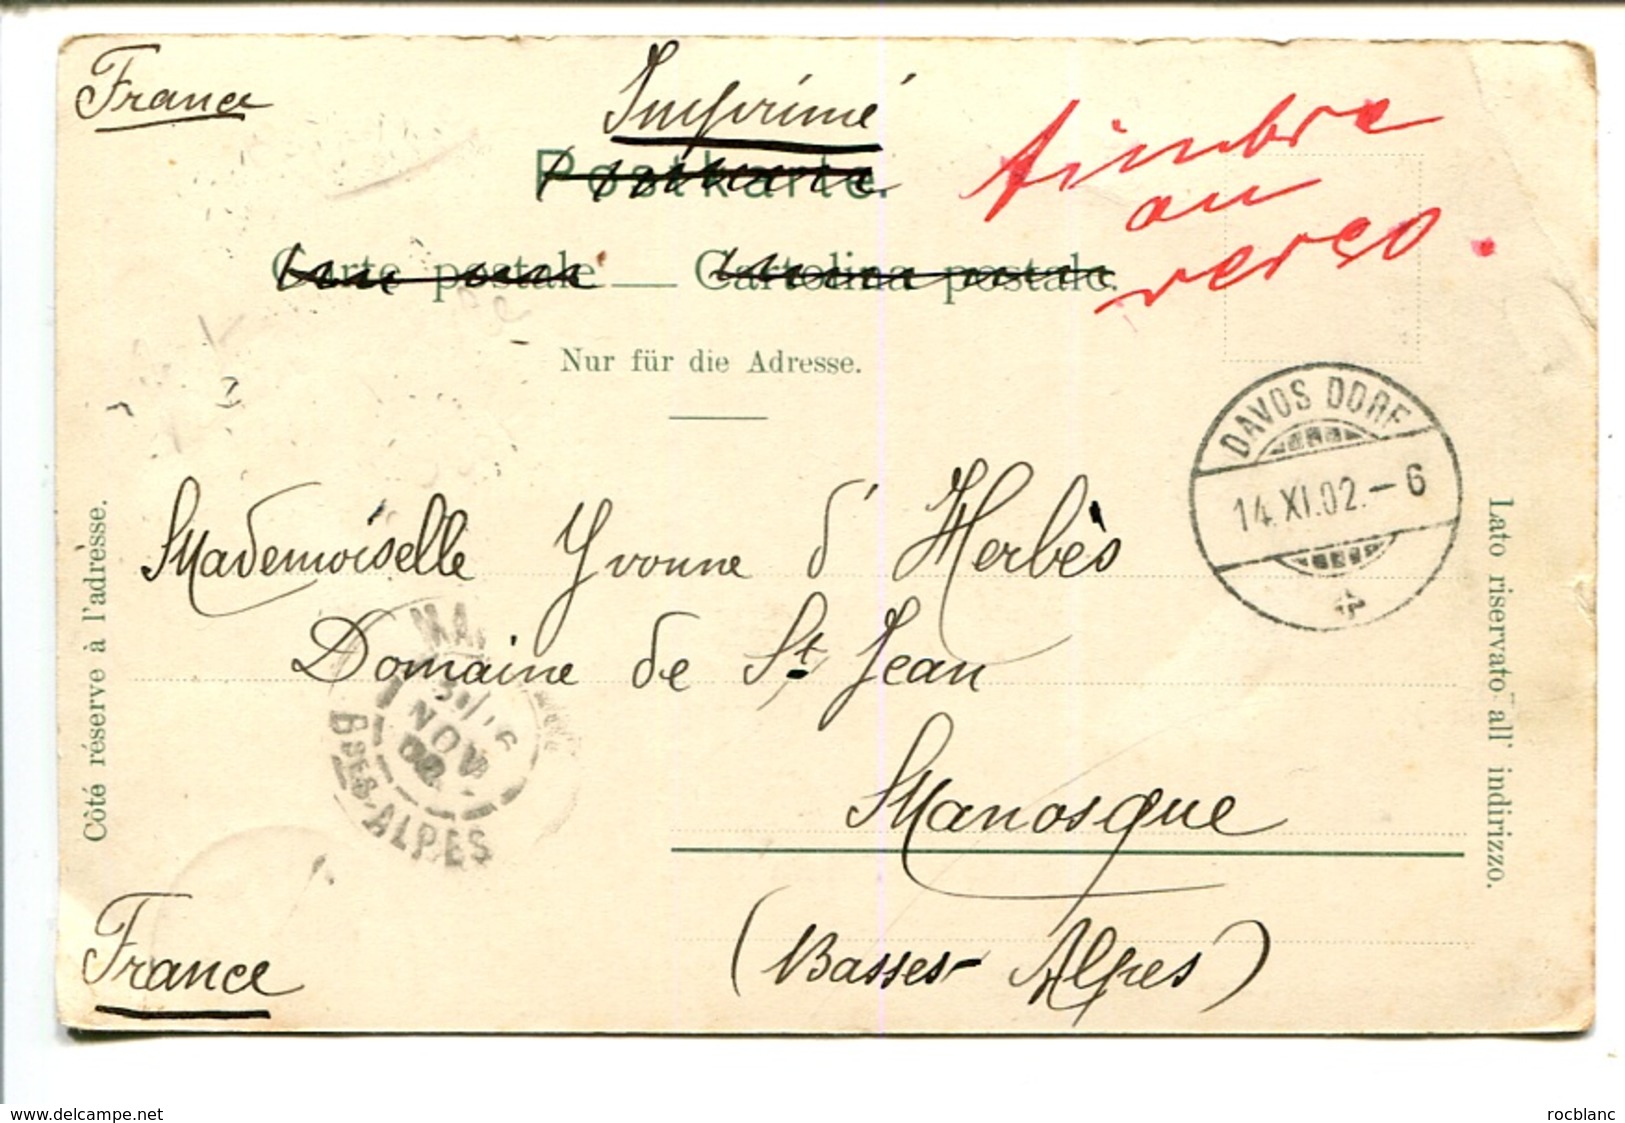 France
Imprimé
timbre
au
verso.
Postkarte.
Carte postale — Cartolina postale.
Nur für die Adresse.
DAVOS DORF
14.XI.02.-6
Côté réservé à l'adresse.
Lato riservato all' indirizzo.
Mademoiselle Yvonne d'Herbès
Domaine de St Jean
Manosque
(Basses-Alpes)
NOV
02
Bses-ALPES
France
www.delcampe.net
rocblanc